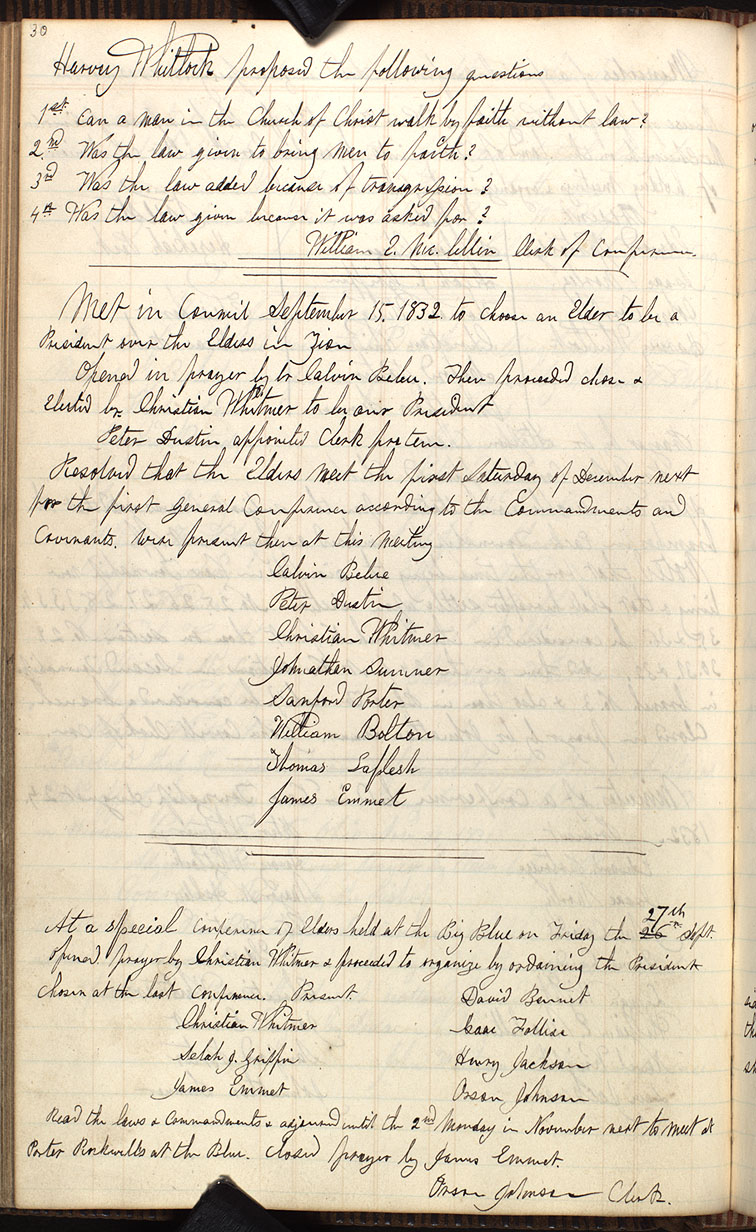 30
Harvey Whitlock proposed the following questions
1st Can a man in the Church of Christ walk by faith without law?
2nd Was the law given to bring men to faith?
3rd Was the law added because of transgression?
4th Was the law given because it was asked for?
William E. Mc. lellin Clerk of Conference.
Met in Council September 15. 1832 to choose an Elder to be a
President over the Elders in Zion
Opened in prayer by br Calvin Bebee. Then proceeded chose &
Elected br Christian Whitmer to be our President
Peter Dustin appointed Clerk protem.
Resolved that the Elders meet the first Saturday of December next
for the first general Conference according to the Commandments and
Covenants. Were present then at this meeting
Calvin Bebee
Peter Dustin
Christian Whitmer
Johnathan Sumner
Sanford Porter
William Bolton
Thomas Saplesh
James Emmet
27th
At a special Conference of Elders held at the Big Blue on Friday the 26th Sept.
opened prayer by Christian Whitmer & proceeded to organize by ordaining the President
chosen at the last Conference. Present.
David Bennet
Christian Whitmer
Isaac Follise
Selah J. Griffin
Henry Jackson
James Emmet
Orson Johnson
Read the laws & Commandments & adjourned until the 2nd Monday in November next to meet at
Porter Rockwells at the Blue. Closed prayer by James Emmet.
Orson Johnson Clerk.